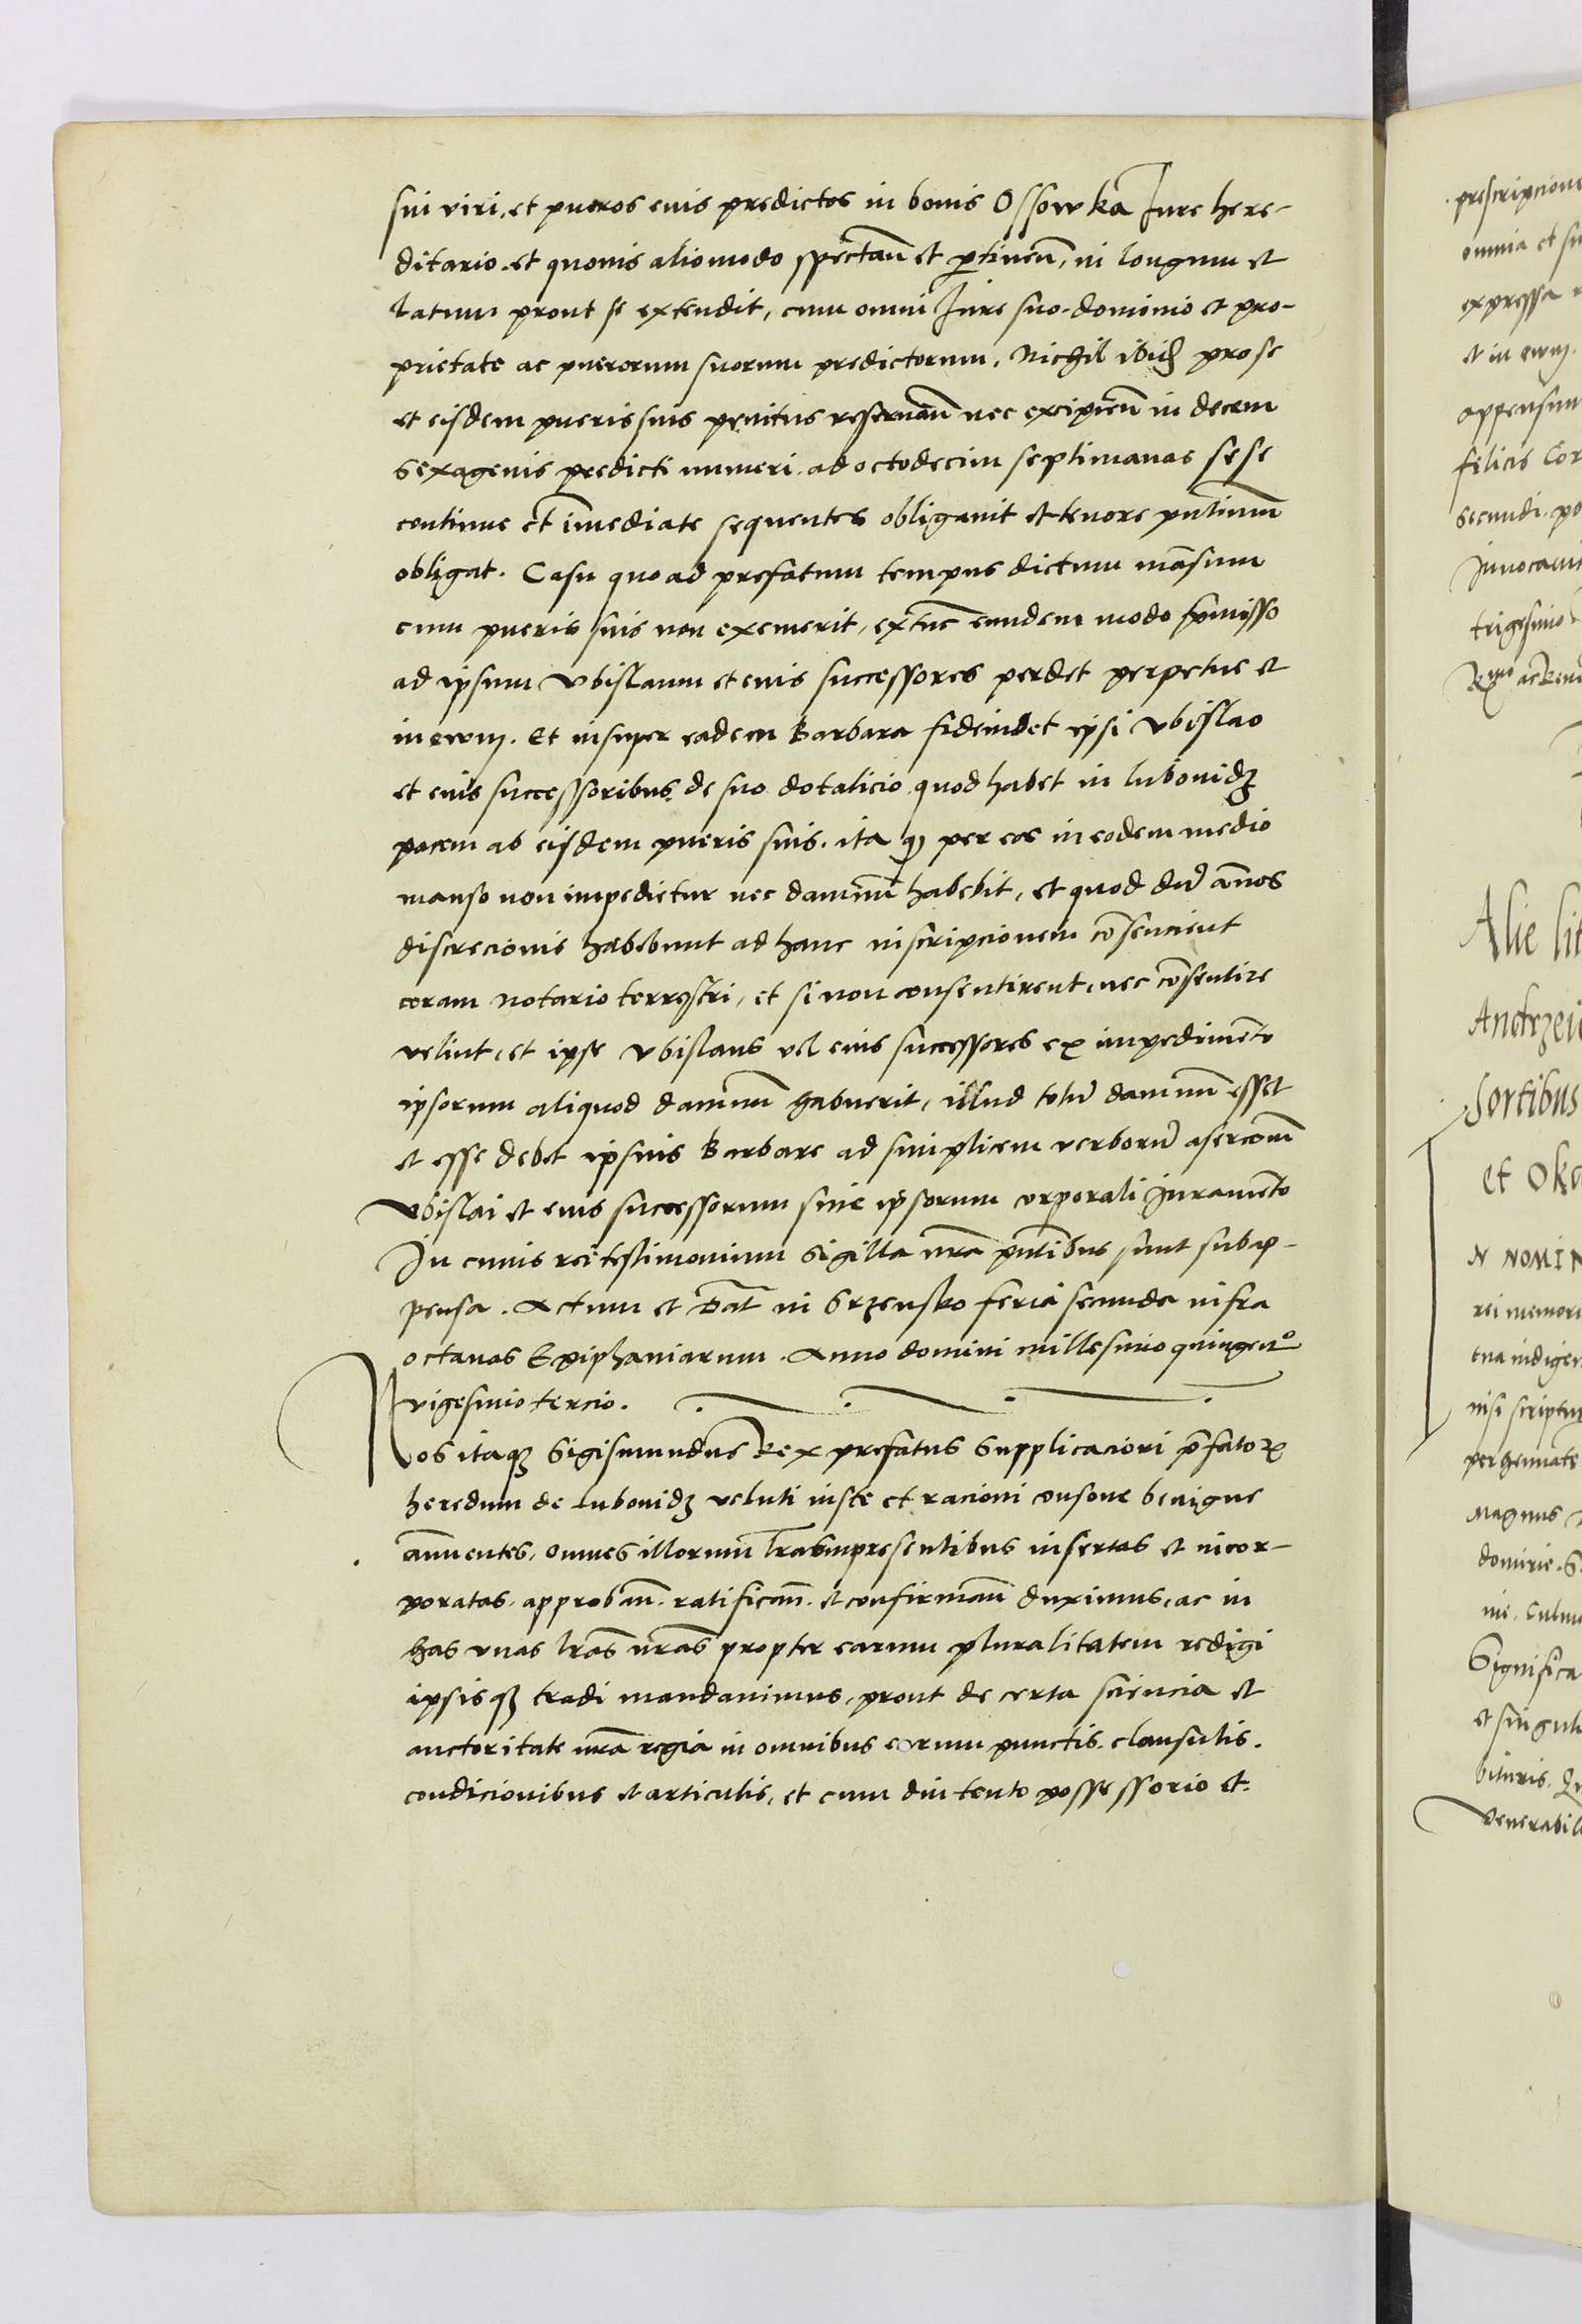 sui viri, et pueros eius predictos in bonis Ossowka Jure here-
ditario. et quouis aliomodo spectañ et ptineñ, in longum et
latum prout se extendit, cum omni Jure suo. dominio et pro-
prietate ac puerorum suorum predictorum. Nichil ibid pro se
et eisdem pueris suis penitus reseruañ nec excipieñ in decem
sexagenis predicti numeri. ad octodecim septimanas sese
continue et īmediate sequentes obligauit et tenore pñtium
obligat. Casu quo ad prefatum tempus dictum māsum
cum pueris suis non exemerit, extūc eundem modo p̄misso
ad ipsum Vbislaum et eius successores perdet perpetue et
in ewm. Et insuper eadem Barbara fideiubet ipsi Vbislao
et eius successoribus de suo dotalicio quod habet in lubonidz
pacem ab eisdem pueris suis. ita q per eos in eodem medio
manso non impedietur nec damnū habebit, et quod dū ānos
discrecionis habebunt ad hanc inscripcionem cōsencient
coram notario terrestri, et si non consentirent, nec cōsentire
velint, et ipse Vbislaus vel eius successores ex impedimēto
ipsorum aliquod damnū habuerit, illud totū damnū esset
et esse debet ipsius Barbare ad simplicem verborū asercōem
Vbislai et eius successorum sine ipsorum corporali Juramēto
In cuius rei testimonium Sigilla nr̄a pn̄tibus sunt subap-
pensa. Actum et Dat̄ in Srzensko feria secunda infra
octauas Epiphaniarum. Anno domini millesimo quingenᵒ
vigesimo tercio.
Nos itaqz Sigismundus Rex prefatus Supplicacioni p̄fatoꝝ
heredum de lubonidz veluti iuste et racioni consone benigne
ānuentes, omnes illorum lr̄as in presentibus insertas et incor-
poratas. approbañ. ratificañ. et confirmañ duximus. ac in
has vnas lr̄as nr̄as propter earum pluralitatem redigi
ipsisqz tradi mandauimus, prout de certa sciencia et
auctoritate nr̄a regia in omnibus earum punctis. clausulis.
condicionibus et articulis, et cum diu tento possessorio et
prescripcione
omnia et su
expressa
et in ewm.
appensum
felicis Cor
secundi. po
Alie lit
sortibus
et Oka
N NOMIN
rei memori
nisi scriptu
Magnus
Significa
et singul
bituris. Q
Venerabil